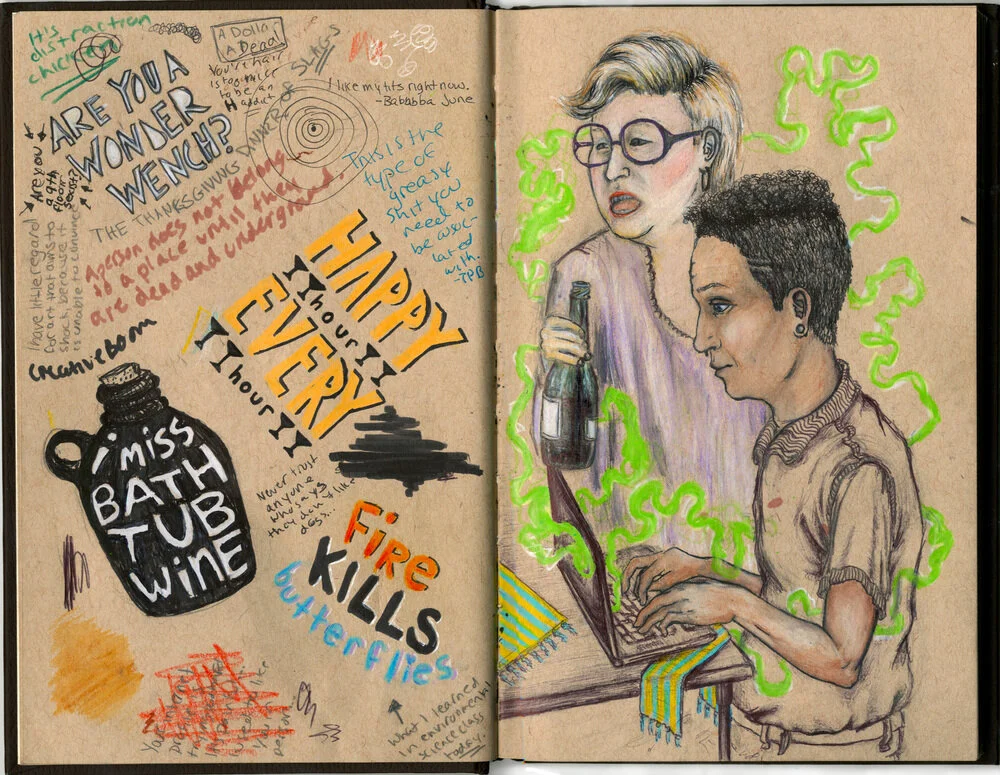 it's
distraction
chicken
A Dolla
A Dead
ARE YOU A
WONDER
WENCH?
I like my tits right now.
-Bababba June
THE THANKSGIVINGS DINNER OF SLAGS
Are you
a 9th
floor
sexist?
This is the
type of
greasy
shit you
need to
be woc-
lated
with.
-TPB
A person does not belong
to a place until they
are dead and underground.
I have little regard
for art that owns to
shock, because it
is unable to convince
creative boom
HAPPY
hour
EVERY
hour
i miss
BATH
TUB
WiNE
Never trust
anyone
who says
they don't like
dogs...
Fire
KILLS
butterflies
what I learned
in environmental
science class
today.